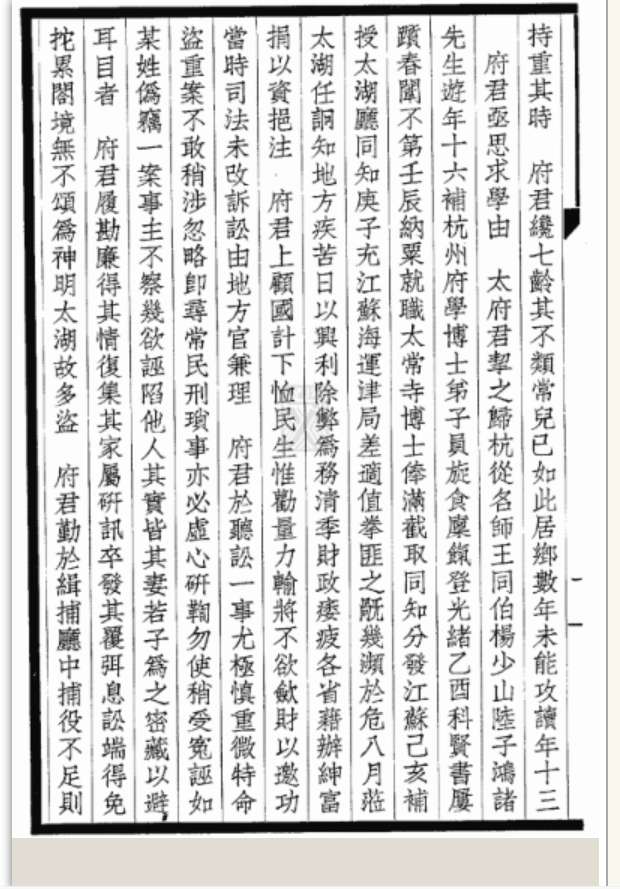 持重其時　府君纔七齡其不類常兒已如此居鄉數年未能攻讀年十三
府君亟思求學由　太府君挈之歸杭從名師王同伯楊少山陸子鴻諸
先生遊年十六補杭州府學博士弟子員旋食廩餼登光緒乙酉科賢書屢
躓春闈不第壬辰納粟就職太常寺博士俸滿截取同知分發江蘇己亥補
授太湖廳同知庚子充江蘇海運津局差適值拳匪之亂幾瀕於危八月蒞
太湖任詗知地方疾苦日以興利除弊為務清季財政痿疲各省藉辦紳富
捐以資挹注　府君上顧國計下恤民生惟勸量力輸將不欲斂財以邀功
當時司法未改訴訟由地方官兼理　府君於聽訟一事尤極慎重微特命
盜重案不敢稍涉忽略卽尋常民刑瑣事亦必虛心研鞫勿使稍受冤誣如
某姓僞竊一案事主不察幾欲誣陷他人其實皆其妻若子爲之密藏以避
耳目者　府君履勘廉得其情復集其家屬研訊卒發其覆弭息訟端得免
拕累闔境無不頌爲神明太湖故多盜　府君勤於緝捕廳中捕役不足則